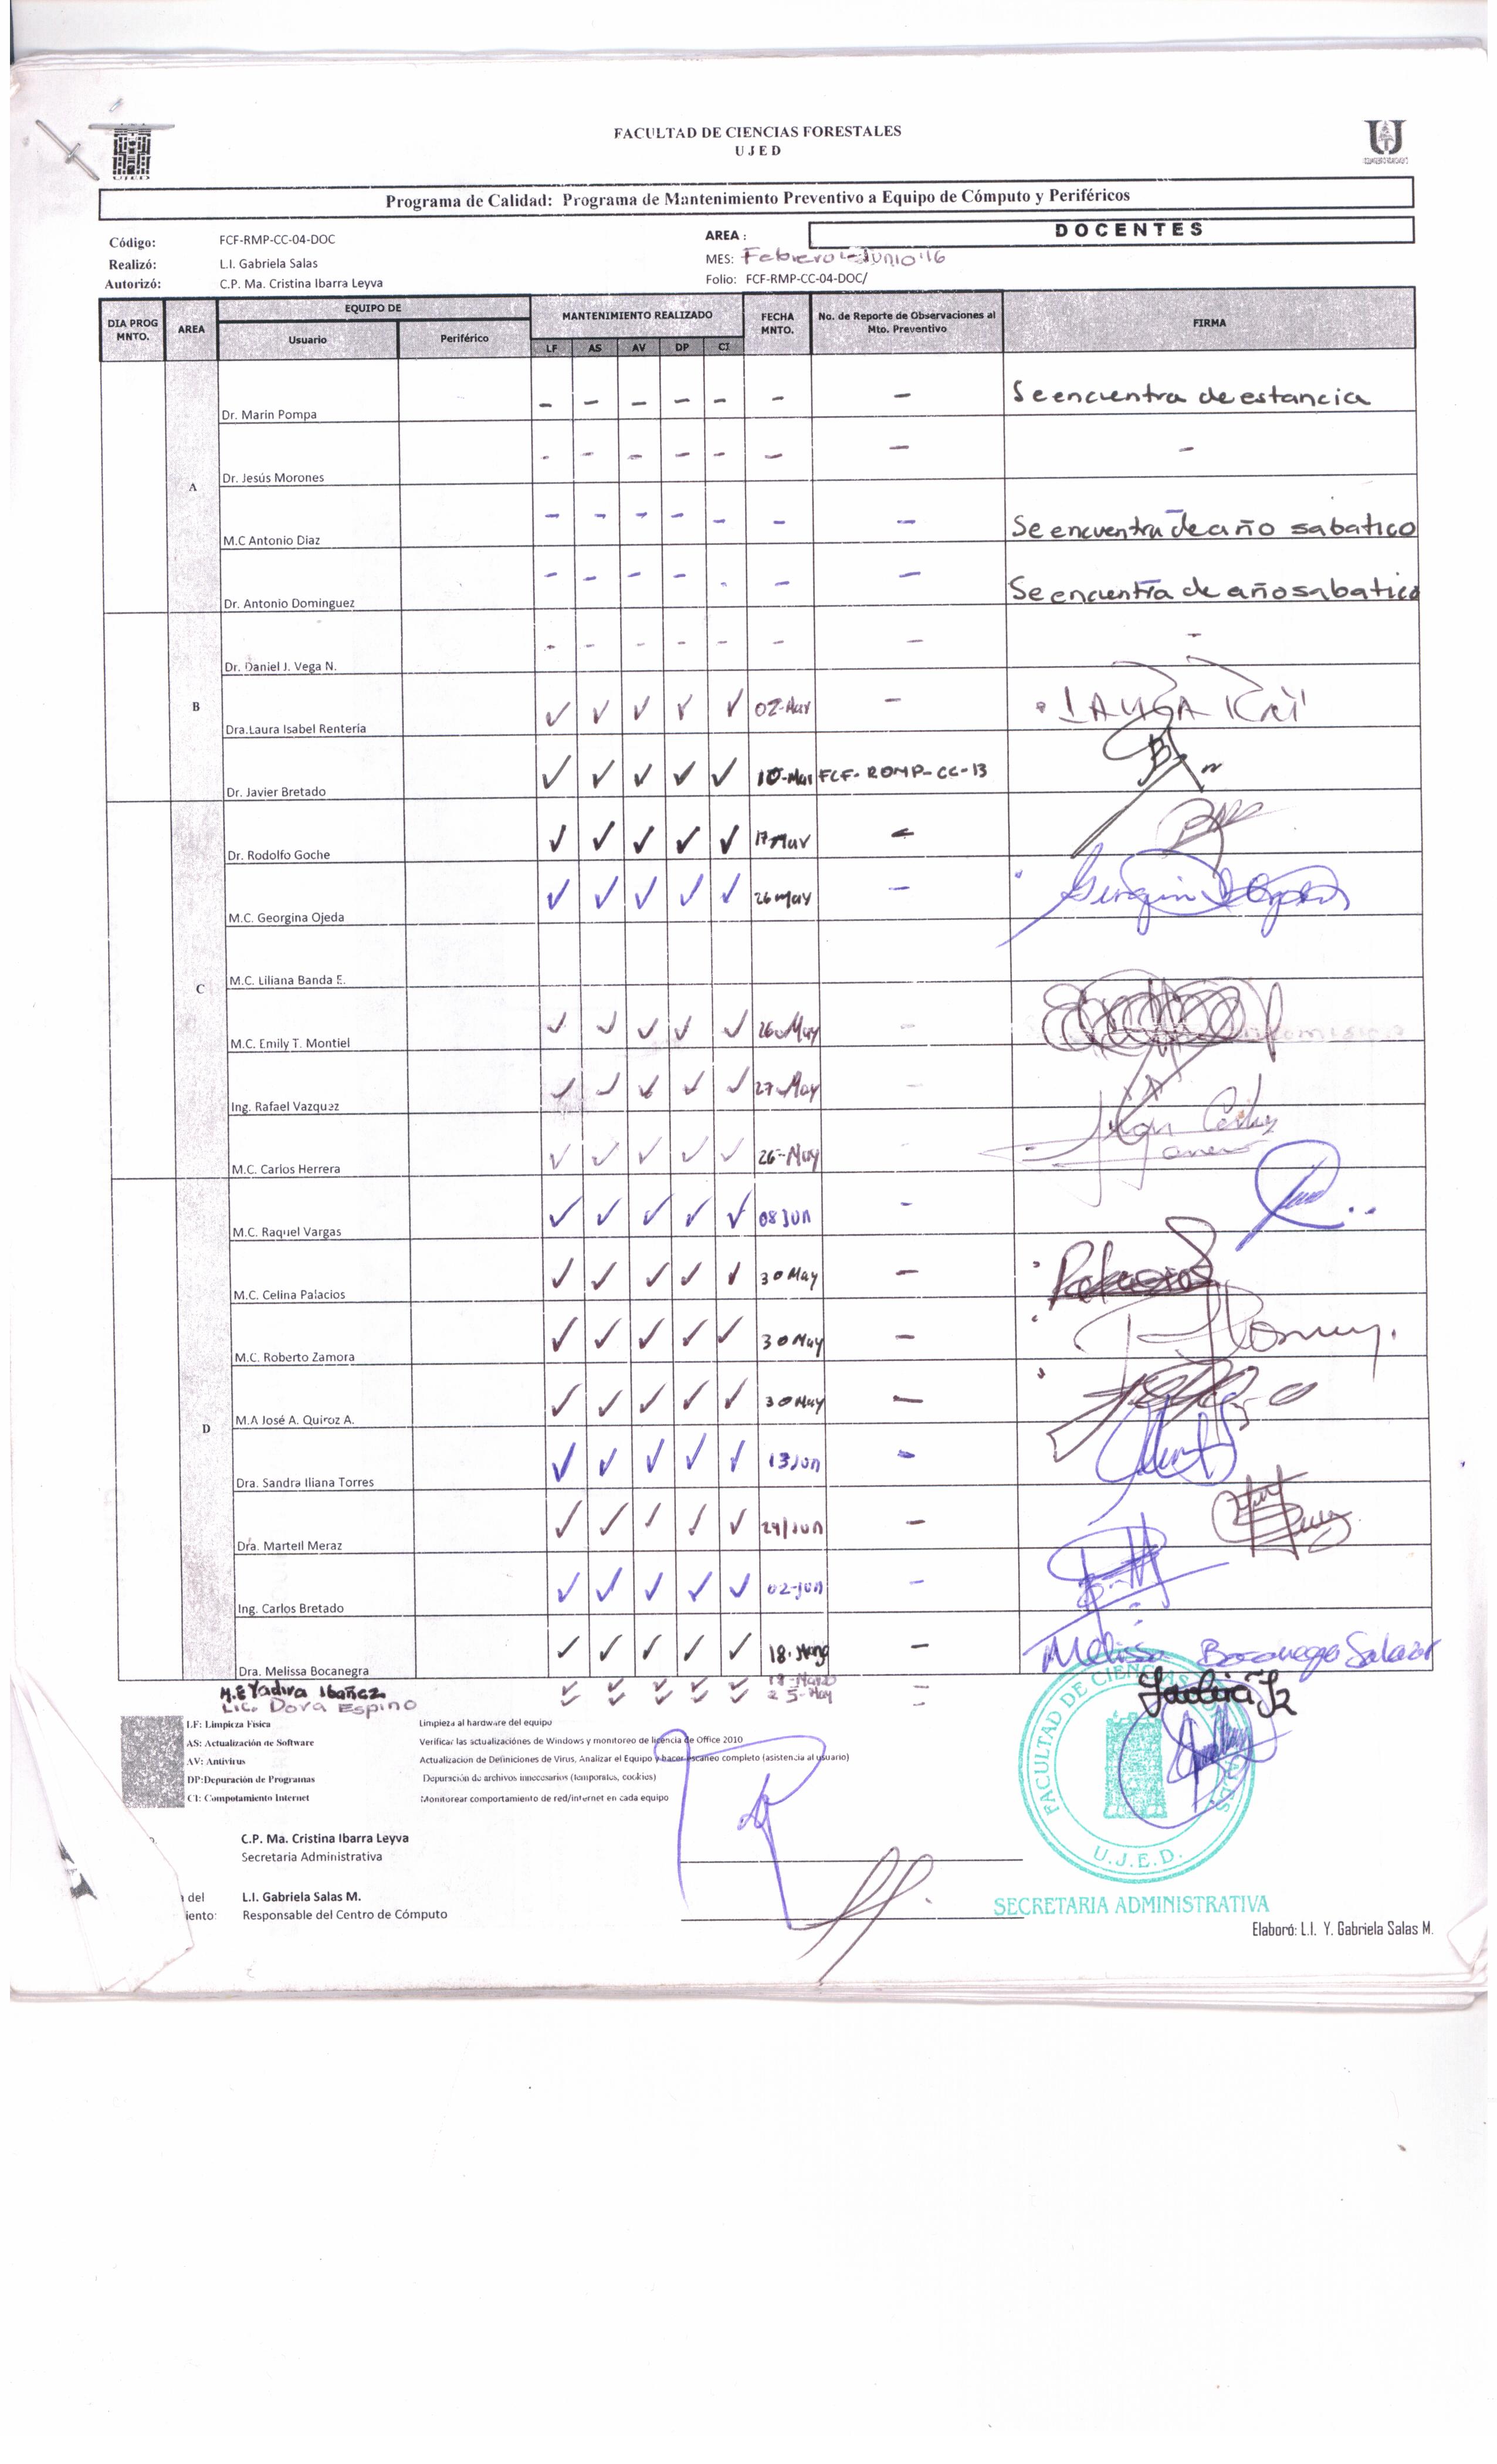 FACULTAD DE CIENCIAS FORESTALES
UJED
Programa de Calidad: Programa de Mantenimiento Preventivo a Equipo de Cómputo y Periféricos
Código: FCF-RMP-CC-04-DOC AREA : DOCENTES
Realizó: L.I. Gabriela Salas MES: Febrero - Junio '16
Autorizó: C.P. Ma. Cristina Ibarra Leyva Folio: FCF-RMP-CC-04-DOC/
DIA PROG MNTO. AREA EQUIPO DE MANTENIMIENTO REALIZADO FECHA MNTO. No. de Reporte de Observaciones al Mto. Preventivo FIRMA
Usuario Periférico LF AS AV DP CI
Dr. Marin Pompa - - - - - - - Se encuentra de estancia
Dr. Jesús Morones - - - - - - - -
A
M.C Antonio Diaz - - - - - - - Se encuentra de año sabatico
Dr. Antonio Dominguez - - - - - - - Se encuentra de año sabatico
Dr. Daniel J. Vega N. - - - - - - - -
B
Dra.Laura Isabel Renteria ✓ ✓ ✓ ✓ ✓ 02-Mar -
Dr. Javier Bretado ✓ ✓ ✓ ✓ ✓ 10-Mar FCF-ROMP-CC-13
Dr. Rodolfo Goche ✓ ✓ ✓ ✓ ✓ 17 Mar -
M.C. Georgina Ojeda ✓ ✓ ✓ ✓ ✓ 26 may -
M.C. Liliana Banda E.
C
M.C. Emily T. Montiel ✓ ✓ ✓ ✓ ✓ 26-May -
Ing. Rafael Vazquez ✓ ✓ ✓ ✓ ✓ 27-May -
M.C. Carlos Herrera ✓ ✓ ✓ ✓ ✓ 26-May -
M.C. Raquel Vargas ✓ ✓ ✓ ✓ ✓ 08 Jun -
M.C. Celina Palacios ✓ ✓ ✓ ✓ ✓ 30 May -
M.C. Roberto Zamora ✓ ✓ ✓ ✓ ✓ 30 May -
M.A José A. Quiroz A. ✓ ✓ ✓ ✓ ✓ 30 May -
D
Dra. Sandra Iliana Torres ✓ ✓ ✓ ✓ ✓ 13 Jun -
Dra. Martell Meraz ✓ ✓ ✓ ✓ ✓ 24/Jun -
Ing. Carlos Bretado ✓ ✓ ✓ ✓ ✓ 02-Jun -
Dra. Melissa Bocanegra ✓ ✓ ✓ ✓ ✓ 18- - Melissa Bocanegra Salazar
M.E Yadira Ibañez ✓ ✓ ✓ ✓ ✓ -
Lic. Dora Espino ✓ ✓ ✓ ✓ ✓ 25-May -
LF: Limpieza Física Limpieza al hardware del equipo
AS: Actualización de Software Verificar las actualizaciónes de Windows y monitoreo de licencia de Office 2010
AV: Antivirus Actualizacion de Definiciones de Virus, Analizar el Equipo y hacer escaneo completo (asistencia al usuario)
DP:Depuración de Programas Depuración de archivos innecesarios (temporales, cookies)
CI: Compotamiento Internet Monitorear comportamiento de red/internet en cada equipo
C.P. Ma. Cristina Ibarra Leyva
Secretaria Administrativa
del L.I. Gabriela Salas M.
iento: Responsable del Centro de Cómputo
FACULTAD DE CIENCIAS FORESTALES
U.J.E.D.
SECRETARIA ADMINISTRATIVA
Elaboró: L.I. Y. Gabriela Salas M.